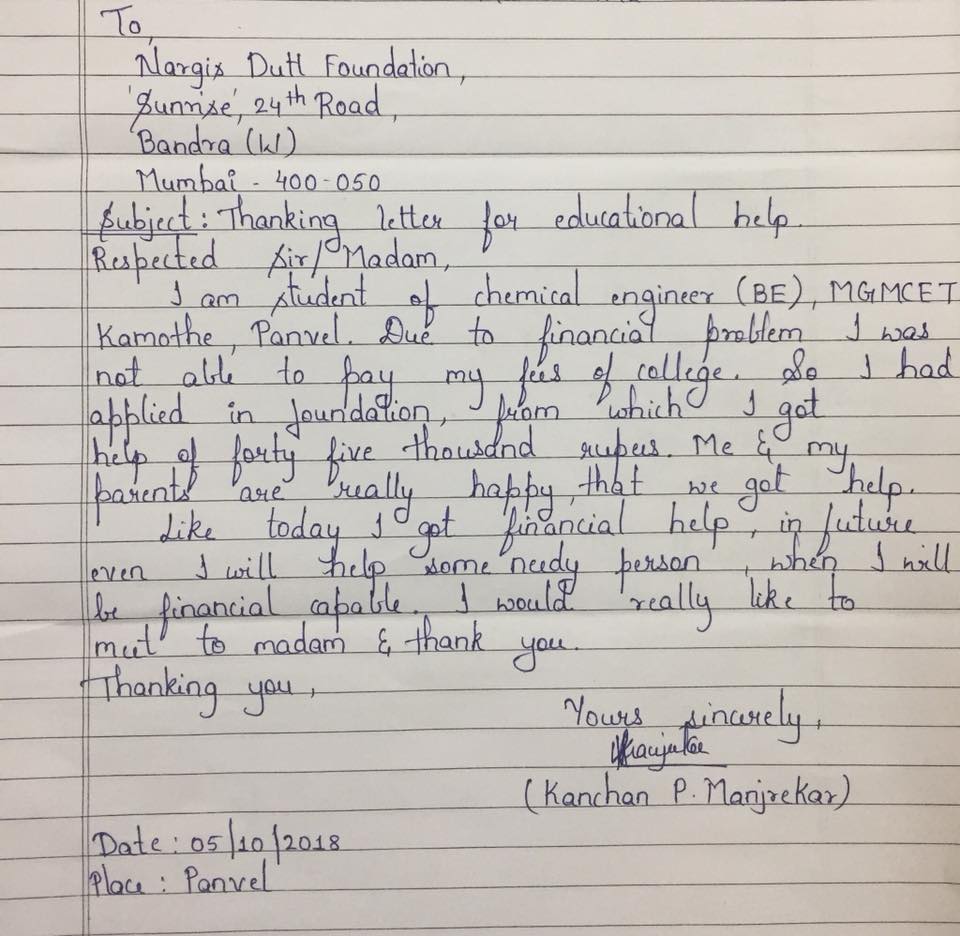 To,
Nargis Dutt Foundation,
'Sunrise', 24th Road,
Bandra (W)
Mumbai - 400-050
Subject : Thanking letter for educational help.
Respected Sir/Madam,
I am student of chemical engineer (BE), MGMCET
Kamothe, Panvel. Due to financial problem I was
not able to pay my fees of college. So I had
applied in foundation, from which I got
help of forty five thousand rupees. Me & my
parents are really happy, that we got help.
Like today I got financial help, in future
even I will help some needy person, when I will
be financial capable. I would really like to
meet to madam & thank you.
Thanking you,
Yours sincerely,
(Kanchan P. Manjrekar)
Date : 05/10/2018
Place : Panvel